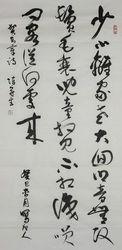 少小離家老大回鄉音無改
鬢毛衰兒童相見不相識笑
問客從何處來